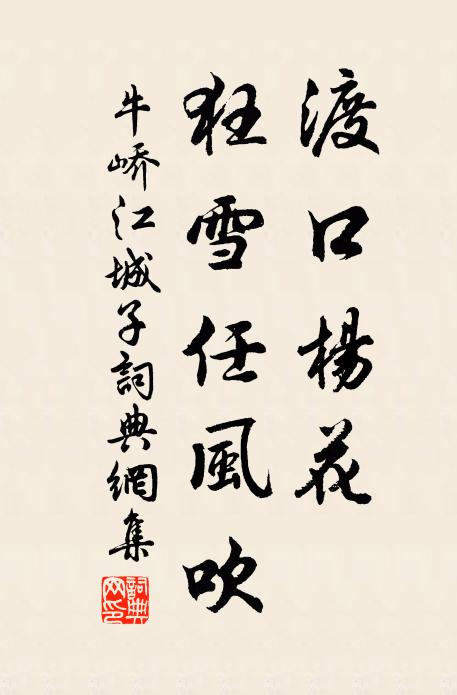 渡口楊花
狂雪任風吹
牛嶠江城子詞典網集
詞典網印